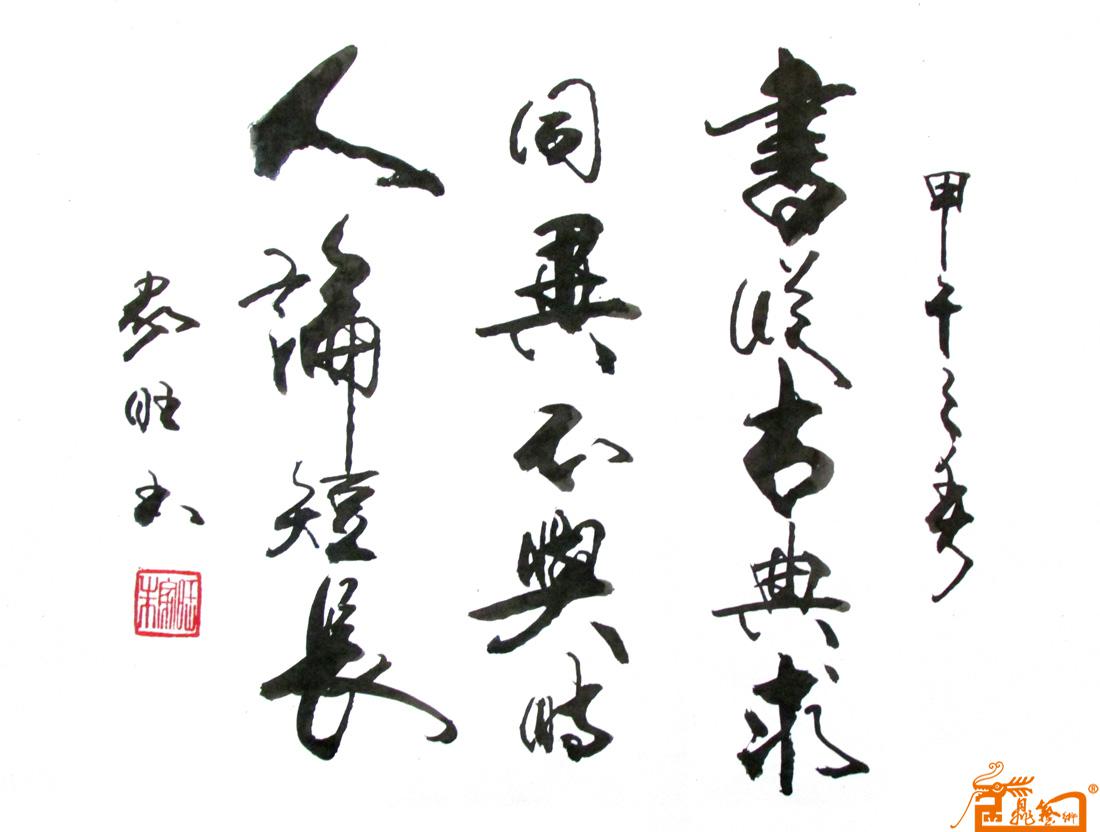 甲午之
書從古典求
同異不與時
人論短長
家旺書